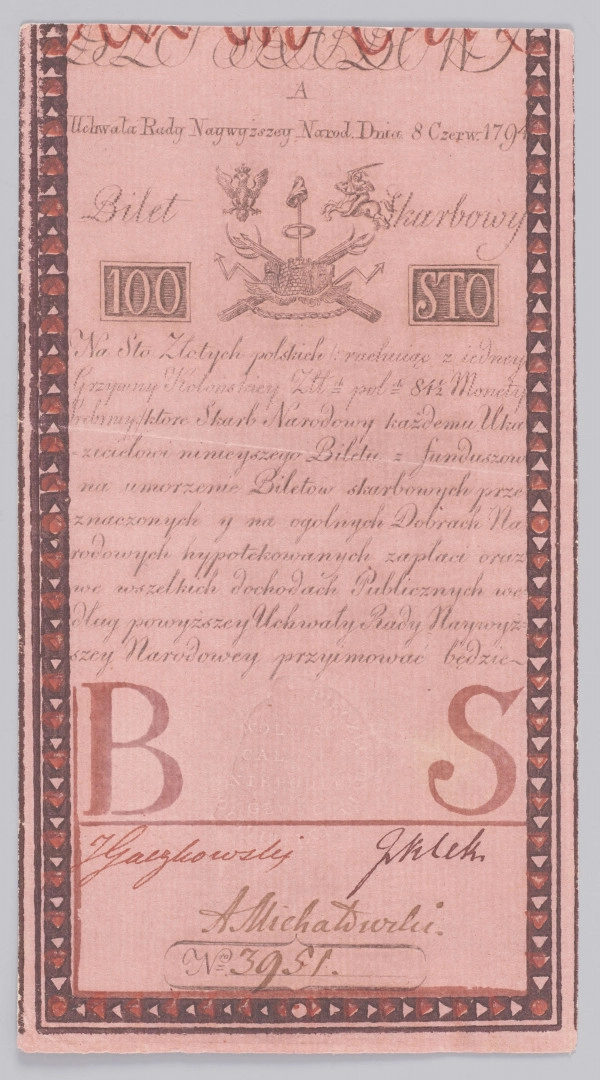 A
Uchwała Rady Naywyższey Narod. Dnia 8 Czerw. 1794
Bilet Skarbowy
100 STO
Na Sto Złotych polskich /: rachuiąc z iedney
Grzywny Kolońskiey Złł. pol. 84½ Monety
srebrney :/ ktore Skarb Narodowy każdemu Uka
-zicielowi ninieyszego Biletu z funduszow
na umorzenie Biletow skarbowych prze
znaczonych y na ogolnych Dobrach Na
rodowych hypotekowanych zapłaci oraz
we wszelkich dochodach Publicznych we
dług powyższey Uchwały Rady Naywyż
szey Narodowey przyimować będzie
B S
JGaczkowski
A Michałowski.
No 3951.